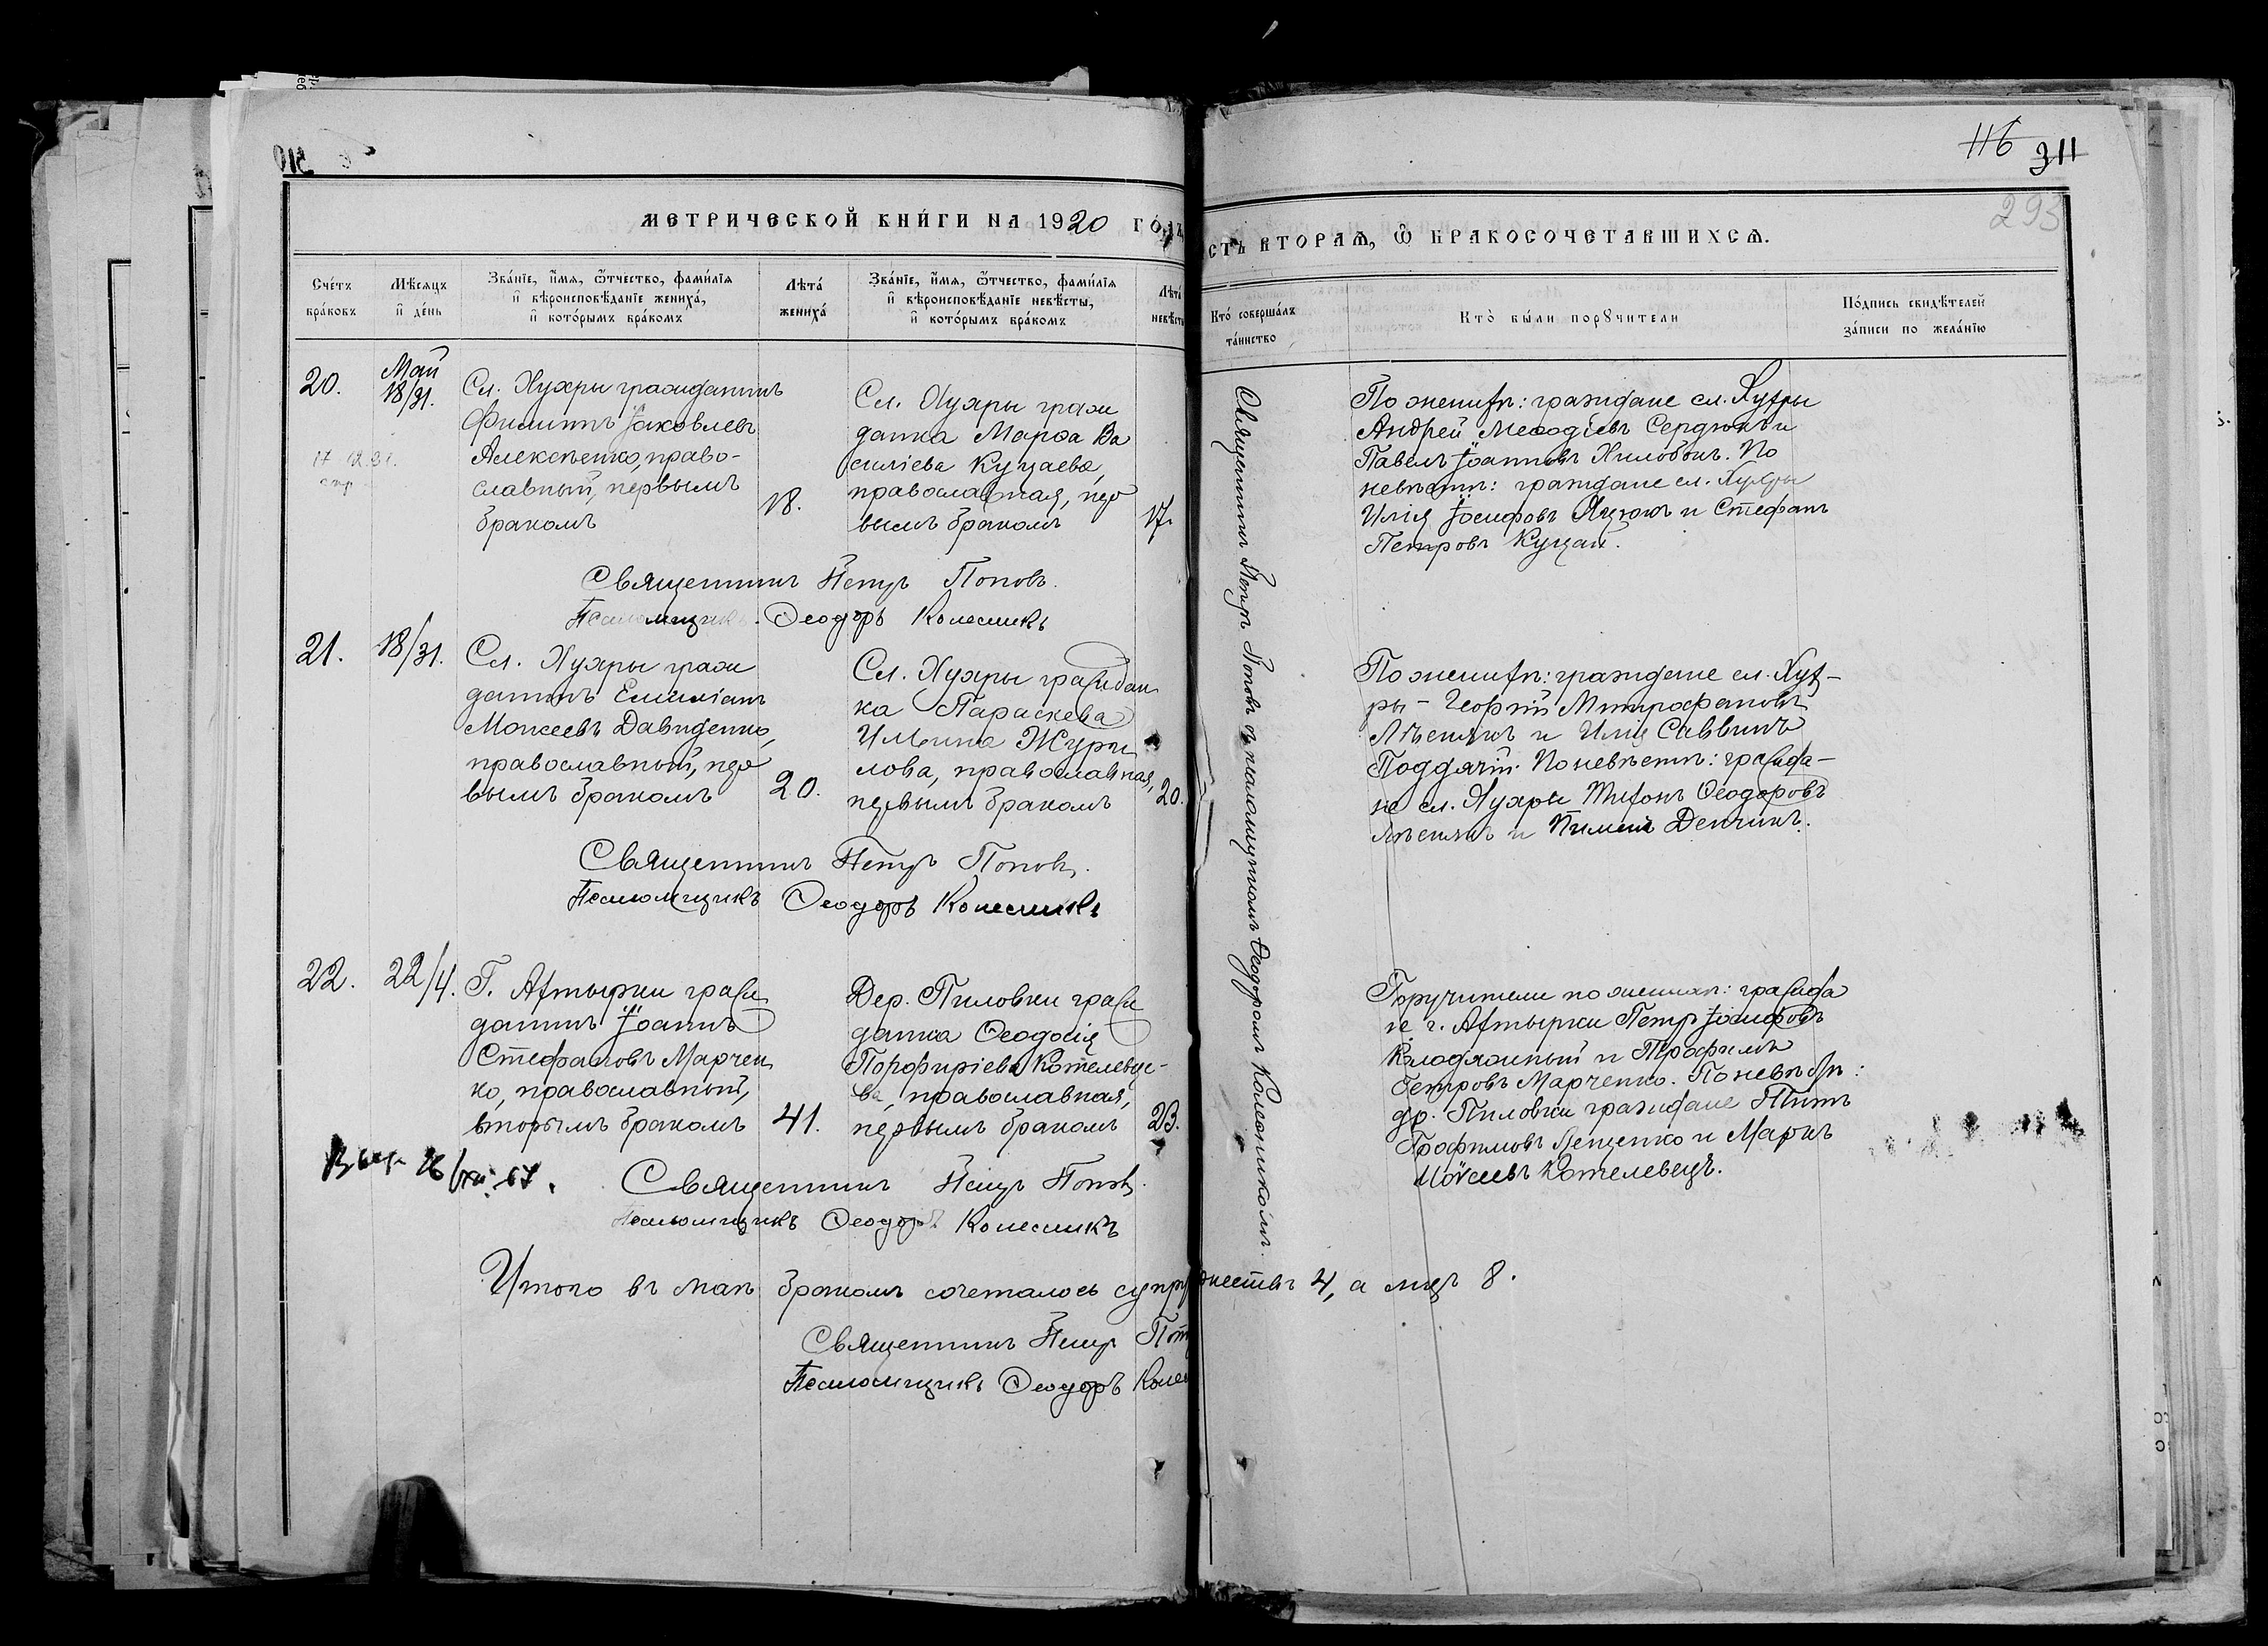 116 311
293
МЕТРИЧЕСКОЙ КНИГИ НА 1920 ГОДЪ
СТЬ ВТОРАЯ, Ѿ БРАКОСОЧЕТАВШИХСЯ.
Счетъ браковъ
Мѣсяцъ и день
Званіе, имя, ѿтчество, фамилія
и вѣроисповѣданіе жениха,
и которымъ бракомъ
Лѣта жениха
Званіе, имя, ѿтчество, фамилія
и вѣроисповѣданіе невѣсты,
и которымъ бракомъ
Лѣта невѣсты
Кто совершалъ таинство
Кто были порꙋчители
Подпись свидѣтелей
записи по желанію
20.
Май
18/31.
Сл. Хухры гражданинъ
Филиппъ Іаковлевъ
Алексѣенко, право-
славный, первымъ
бракомъ
18.
Сл. Хухры граж
данка Марѳа Ва
силіева Куцаева,
православная, пер
вымъ бракомъ
17.
По женихѣ: граждане сл. Хухры
Андрей Меѳодіевъ Сердюкъ и
Павелъ Іоанновъ Хилобокъ. По
невѣстѣ: граждане сл. Хухры
Илія Іосифовъ Яцюкъ и Стефанъ
Петровъ Куцай.
Священникъ Петръ Поповъ.
Псаломщикъ Ѳеодоръ Колесникъ
21.
18/31.
Сл. Хухры граж
данинъ Емиліанъ
Моисеевъ Давиденко,
православный, пер
вымъ бракомъ
20.
Сл. Хухры граждан
ка Параскева
Ильина Жури
лова, православная,
первымъ бракомъ
20.
По женихѣ: граждане сл. Хух-
ры - Георгій Митрофановъ
Лѣснякъ и Илія Саввинъ
Поддячій. По невѣстѣ: гражда-
не сл. Хухры Тихонъ Ѳеодоровъ
Лѣснякъ и Пименъ Демчинъ.
Священникъ Петръ Поповъ.
Псаломщикъ Ѳеодоръ Колесникъ
22.
22/4.
Г. Ахтырки граж
данинъ Іоаннъ
Стефановъ Марчен
ко, православный,
вторымъ бракомъ
41.
Дер. Пиловки граж
данка Ѳеодосія
Порфиріева Котелевце-
ва, православная,
первымъ бракомъ
23.
Поручители по женихѣ: гражда
не г. Ахтырки Петръ Іосифовъ
Колодяжный и Трофимъ
Петровъ Марченко. По невѣстѣ:
др. Пиловки граждане Титъ
Трофимовъ Лещенко и Маркъ
Моѵсеевъ Котелевецъ.
Священникъ Петръ Поповъ.
Псаломщикъ Ѳеодоръ Колесникъ
Священникъ Петръ Поповъ съ псаломщикомъ Ѳеодоромъ Колесникомъ.
Итого въ маѣ бракомъ сочеталось супружествъ 4, а лицъ 8.
Священникъ Петръ Поп
Псаломщикъ Ѳеодоръ Колес